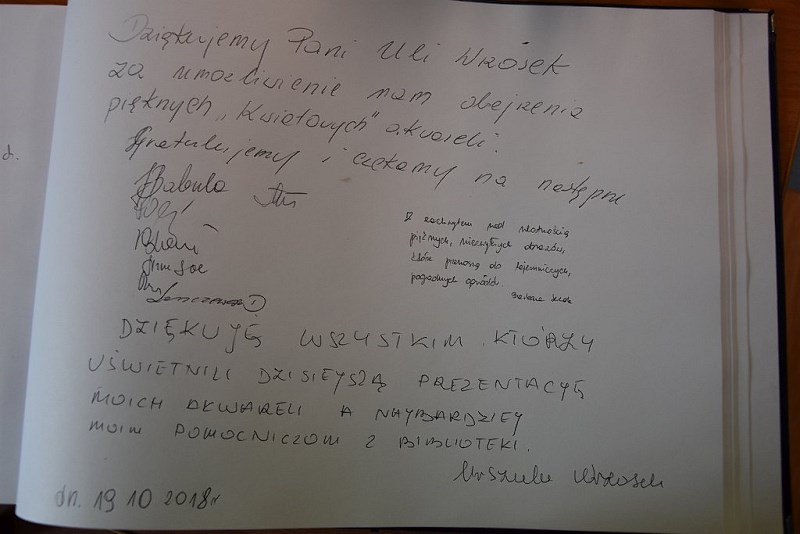 Dziękujemy Pani Uli Wrzosek
za umożliwienie nam obejrzenia
pięknych "Kwiatowych" akwareli.
Gratulujemy i czekamy na następne
Babula
Z zachwytem nad
pięknych, niezwykłych obrazów,
które przenoszą do tajemniczych,
pogodnych ogrodów
DZIĘKUJĘ WSZYSTKIM KTÓRZY
UŚWIETNILI DZISIEYSZĄ PREZENTACYĘ
MOICH AKWARELI A NAYBARDZIEY
MOIM POMOCNICZOM Z BIBLIOTEKI.
Urszula Wrzosek
dn. 19 10 2018r